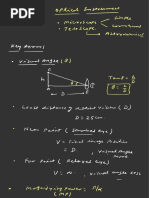 Optical Instrument
• Microscope
Simple
Compound
• Telescope
Astronomical
Key terms
• Visual Angle (θ)
h
θ
D
Tan θ = h/D
θ = h/D
• Least distance of distinct vision (D)
D = 25cm
• Near Point (strained eye)
→ Final image position
= D
visual angle max.
• Far Point (Relaxed eye)
V = ∞
→ visual angle less
• Magnifying power = β/α
(MP)